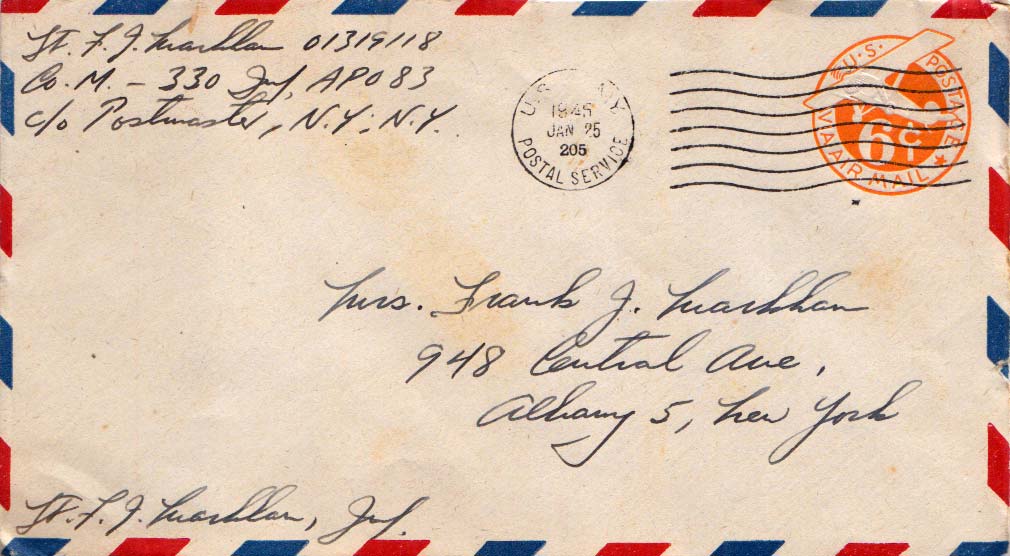 Lt. F. J. Markham 01319118
Co. M. - 330 Inf, APO 83
c/o Postmaster, N.Y., N.Y.
U.S. POSTAL SERVICE
1945
JAN 25
205
U.S. POSTAGE
6c
VIA AIR MAIL
Mrs. Frank J. Markham
948 Central Ave,
Albany 5, New York
Lt. F. J. Markham, Inf.